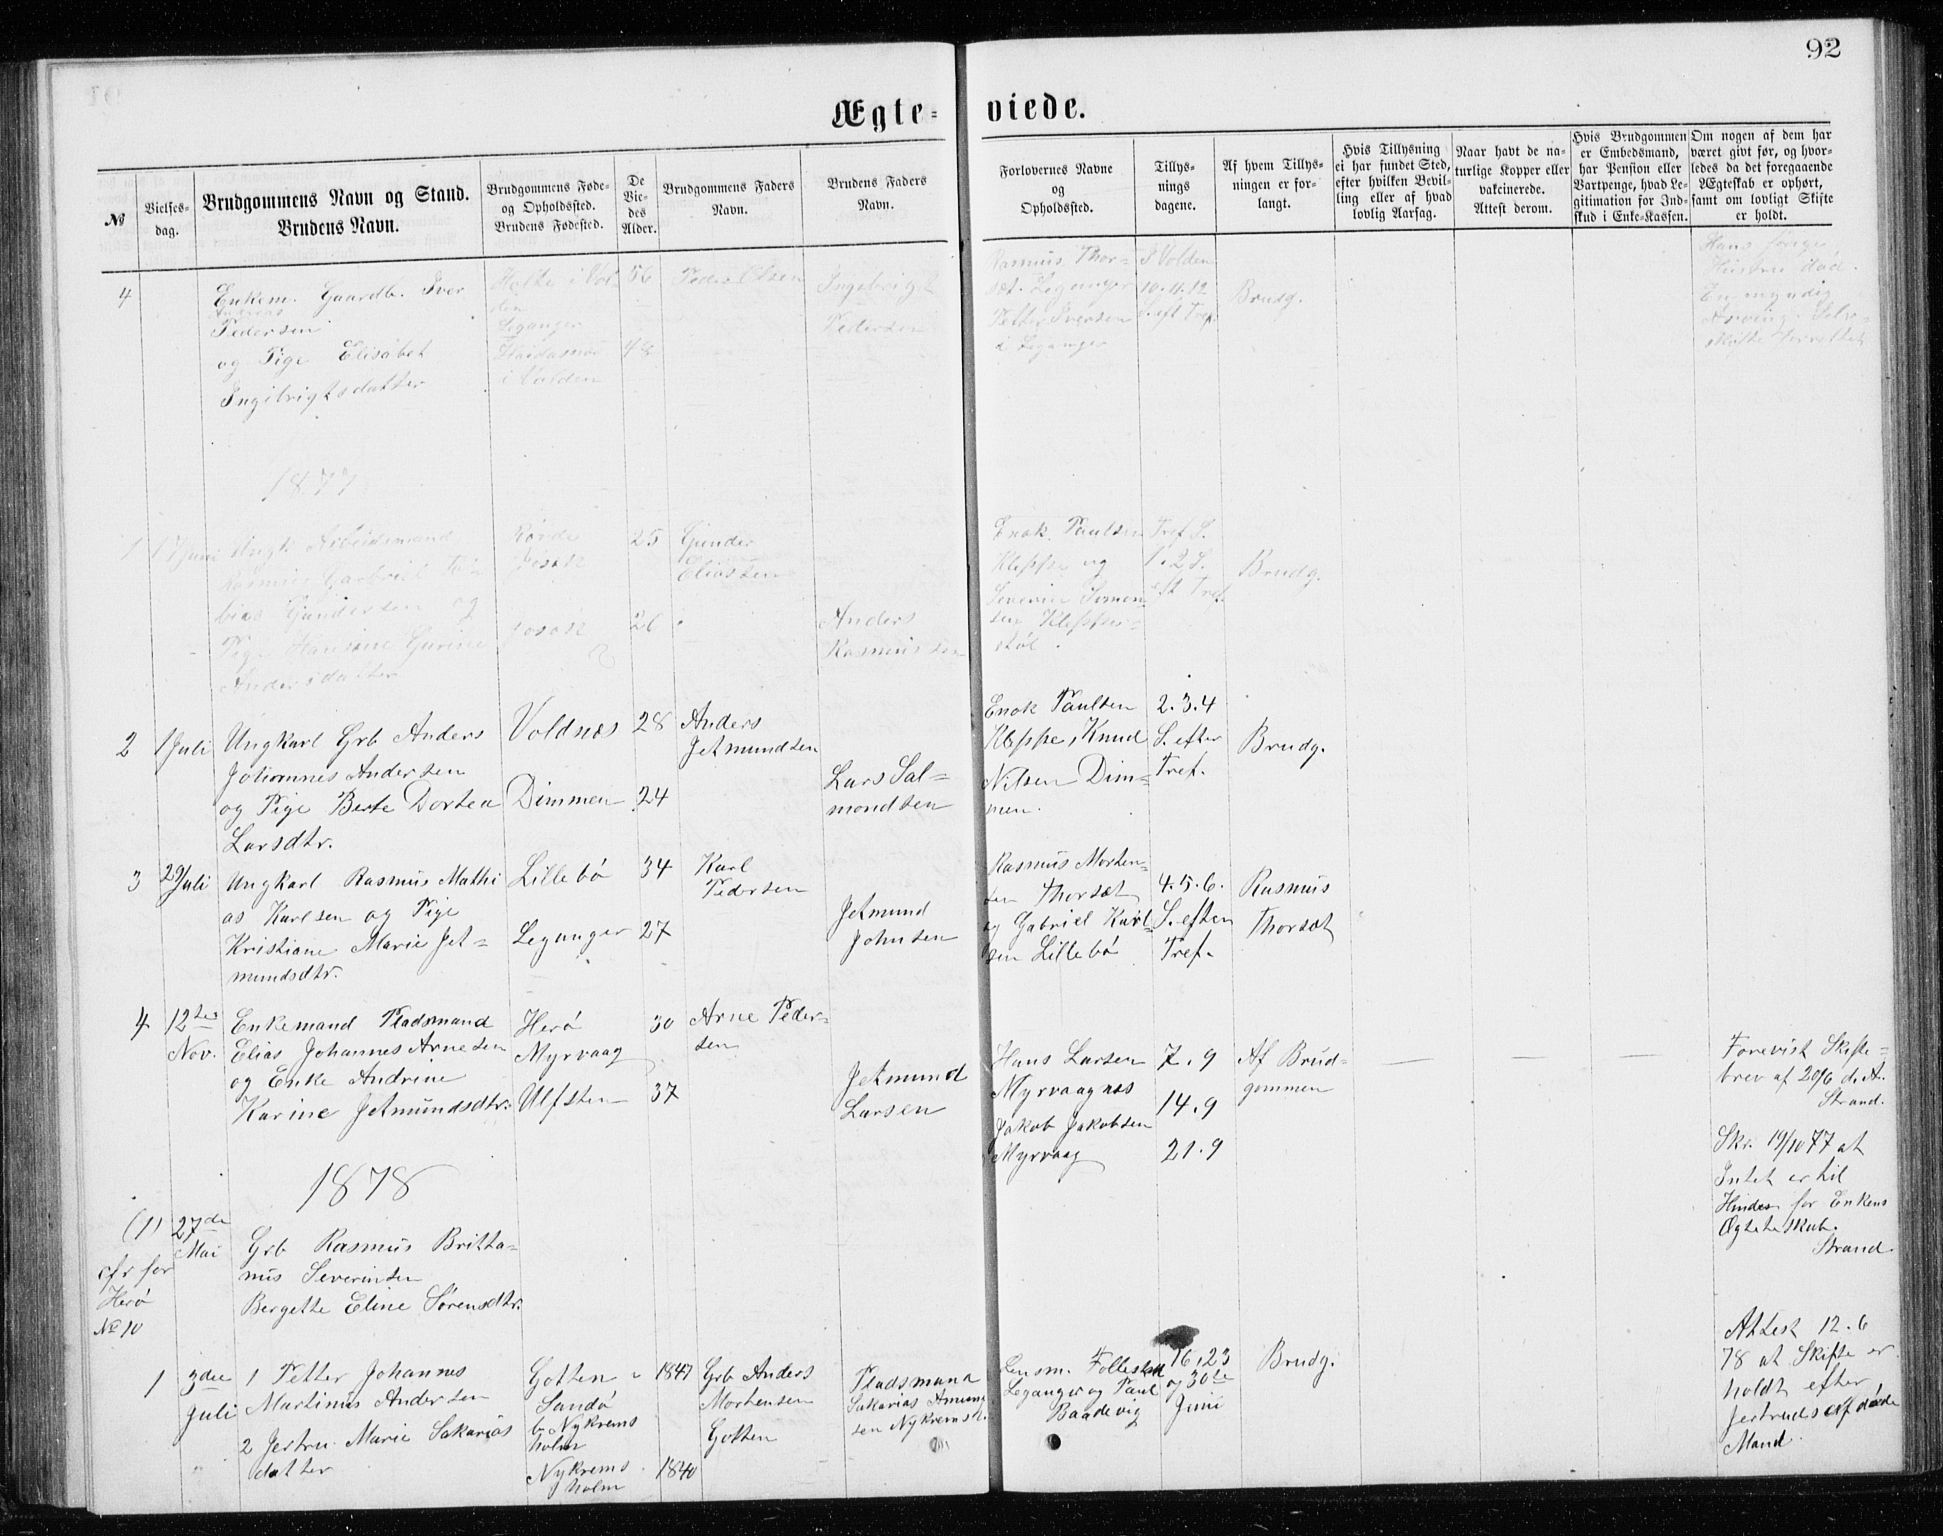 92
Ægte- viede.
№
Vielses-
dag.
Brudgommens Navn og Stand.
Brudens Navn.
Brudgommens Føde-
og Opholdssted.
Brudens Fødested.
De
Vie-
des
Alder.
Brudgommens Faders
Navn.
Brudens Faders
Navn.
Forlovernes Navne
og
Opholdssted.
Tillys-
nings
dagene.
Af hvem Tillys-
ningen er for-
langt.
Hvis Tillysning
ei har fundet Sted,
efter hvilken Bevil-
ling eller af hvad
lovlig Aarsag.
Naar havt de na-
turlige Kopper eller
vakcinerede.
Attest derom.
Hvis Brudgommen
er Embedsmand,
har Pension eller
Vartpenge, hvad Le-
gitimation for Ind-
skud i Enke-Kassen.
Om nogen af dem har
været givt før, og hvor-
ledes da det foregaaende
Ægteskab er ophørt,
samt om lovligt Skifte
er holdt.
4
Enkem. Gaardb. Iver
Andreas
Pedersen
og Pige Elisabet
Ingebrigtsdatter
i Vol-
den
Leganger
i Volden
56
48
Peder Olsen
Ingebrigt
Pedersen
Rasmus Thor-
sæt Leganger
Petter Iversen
i Leganger
I Volden
10.11.12
S. eft Tref.
Brudg.
Hans forige
Hustru død.
En myndig
Arving.
1877
1
17 Juni
Ungk Arbeidsmand
Rasmus Gabriel To-
bias Gundersen og
Pige Hansine Gurine
Andersdatter
Røvde
Josok
Josok
25
26
Gunder
Eliassen
Anders
Rasmussen
Enok Paulsen
Kleppe og
Severin Simon-
sen Klepper-
støl.
Tref. S.
1.2 S.
eft Tref.
Brudg.
2
1 Juli
Ungkarl Grb Anders
Johannes Andersen
og Pige Berte Dortea
Larsdtr.
Voldnæs
Dimmen
28
24
Anders
Jetmundsen
Lars Sal-
mondsen
Enok Paulsen
Kleppe, Knud
Nilsen Dim-
men.
2.3.4
S. efter
Tref.
Brudg.
3
29 Juli
Ungkarl Rasmus Mathi
as Karlsen og Pige
Kristiane Marie Jet-
mundsdtr.
Lillebø
Leganger
34
27
Karl
Pedersen
Jetmund
Johnsen
Rasmus Morten-
sen Thorsæt
og Gabriel Karl-
sen Lillebø
4.5.6.
S. efter
Tref.
Rasmus
Thorsæt
4
12te
Nov.
Enkemand Pladsmand
Elias Johannes Arnesen
og Enke Andrine
Karine Jetmundsdtr.
Herø
Myrvaag
Ulfsten
30
37
Arne Peder-
sen
Jetmund
Larsen
Hans Larsen
Myrvaagnæs
Jakob Jakobsen
Myrvaag
7.9
14.9
21.9
Af Brud-
gommen
Forevist Skifte-
brev af 20/6 d. A.
Strand.
Skr. 19/10 77 at
Intet er til
Hinder for Enkens
Ægteskab.
Strand
1878
(1)
cfr for
Herø
№ 10
27de
Mai
Grb Rasmus Britta-
nus Severinsen
Bergette Eline Sørensdtr.
1
3die
Juli
1 Petter Johannes
Martinus Andersen
2 Jertru Marie Sakarias
datter
Gotten
Sandø
b. Nykrems
holm
Nykrems
holm
1847
1840
Grb Anders
Mortensen
Gotten
Pladsmand
Sakarias Amund
sen Nykremsh.
Lensm. Follestad
Leganger og Paul
Baadevig
16, 23
og 30te
Juni
Brudg.
Attest 12.6
78 at Skifte er
holdt efter
Jertruds afdøde
Mand.